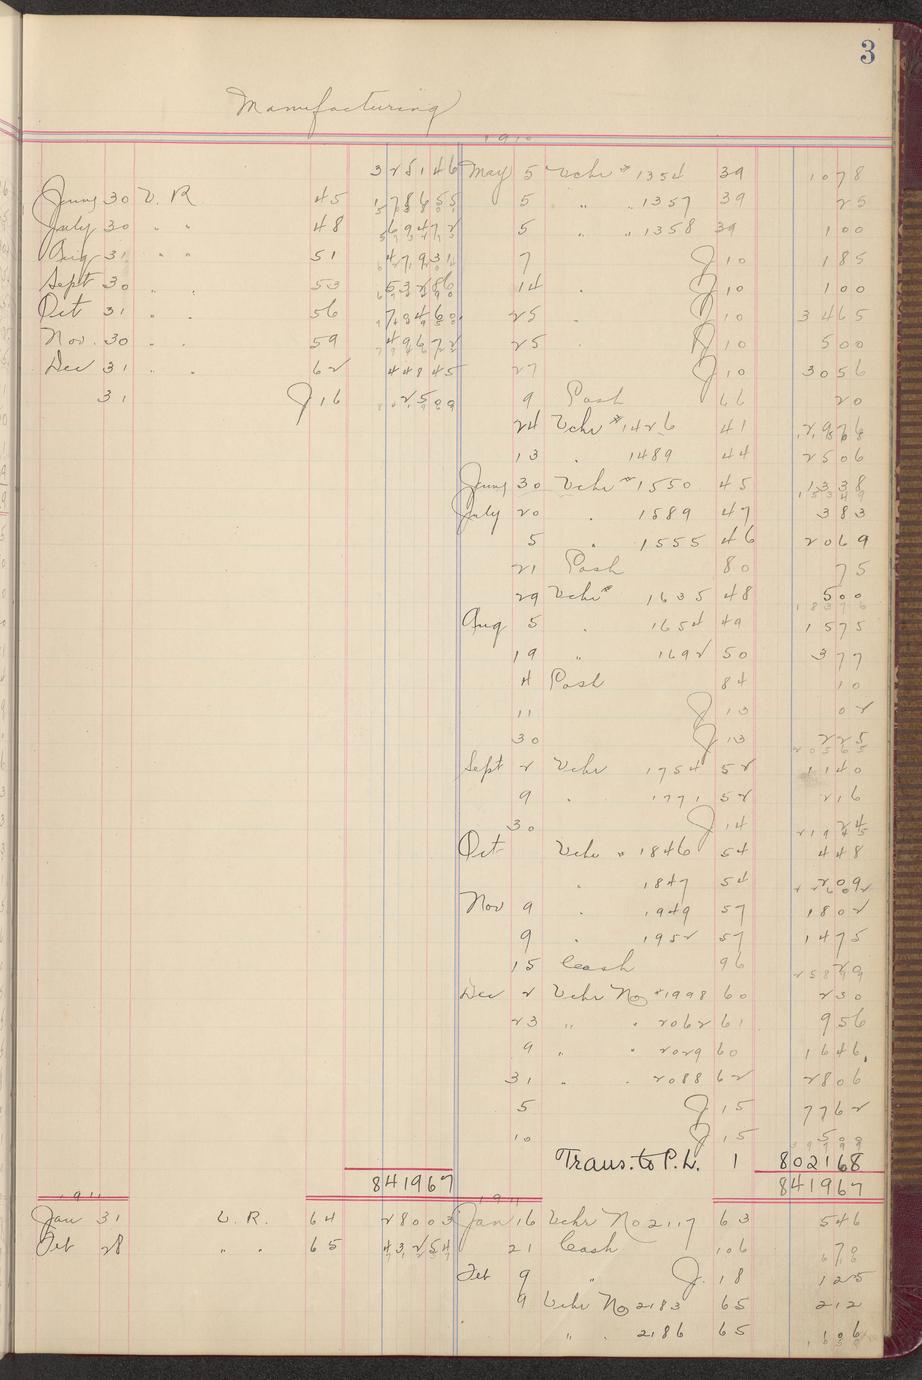 3
Manufacturing
1910
325146 May 5 Vchr # 1354 39 1078
June 30 V. R 45 178655 5 " " 1357 39 25
July 30 " " 48 69472 5 " " 1358 39 100
Aug 31 " " 51 47931 7 J 10 185
Sept 30 " " 53 53286 14 " J 10 100
Oct 31 " " 56 78460 25 " J 10 3465
Nov. 30 " " 59 49672 25 " J 10 500
Dec 31 " " 62 44845 27 J 10 3056
31 J 16 9 Cash 66 20
24 Vchr # 1426 41 2976
13 " 1489 44 2506
June 30 Vchr # 1550 45 1338
July 20 " 1589 47 383
5 " 1555 46 2069
21 Cash 80 75
29 Vchr # 1635 48 500
18376
Aug 5 " 1654 49 1575
19 " 1692 50 377
4 Cash 84 10
11 J 13 02
30 J 13 225
20565
Sept 2 Vchr 1754 52 1140
9 " 1771 52 216
30 J 14 24
21945
Oct Vchr " 1846 54 448
" 1847 54 209
22602
Nov 9 " 1949 57 1802
9 " 1952 57 1475
15 Cash 96
25899
Dec 2 Vchr No # 1998 60 230
23 " " 2062 61 956
9 " " 2029 60 1646
31 " " 2088 62 2806
5 J 15 7762
10 J 15 500
39799
Trans. to P. L. 1 802168
841967 841967
1911 1911
Jan 31 V. R. 64 28003 Jan 16 Vchr No 2117 63 546
Feb 28 " " 65 43254 21 Cash 106 70
Feb 9 " J. 18 125
9 Vchr No 2183 65 212
" " 2186 65 106